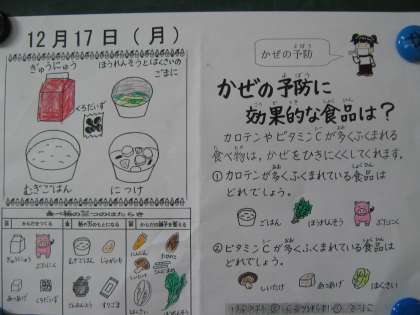 12月17日（月）
ぎゅうにゅう
ほうれんそうとはくさいの
ごまに
くろだいず
むぎごはん
につけ
食べ物の三つのはたらき
赤
黄
緑
ぎゅうにゅう
ぶたにく
むぎごはん
じゃがいも
にんじん
あつあげ
くろだいず
こんにゃく
すりごま
しいたけ
はくさい
かぜの予防
よぼう
かぜの予防に
効果的な食品は？
カロテンやビタミンCが多くふくまれる
食べ物は、かぜをひきにくくしてくれます。
①カロテンが多くふくまれている食品は
どれでしょう。
ごはん
ほうれんそう
ぶたにく
②ビタミンCが多くふくまれている食品は
どれでしょう。
しいたけ
あつあげ
はくさい